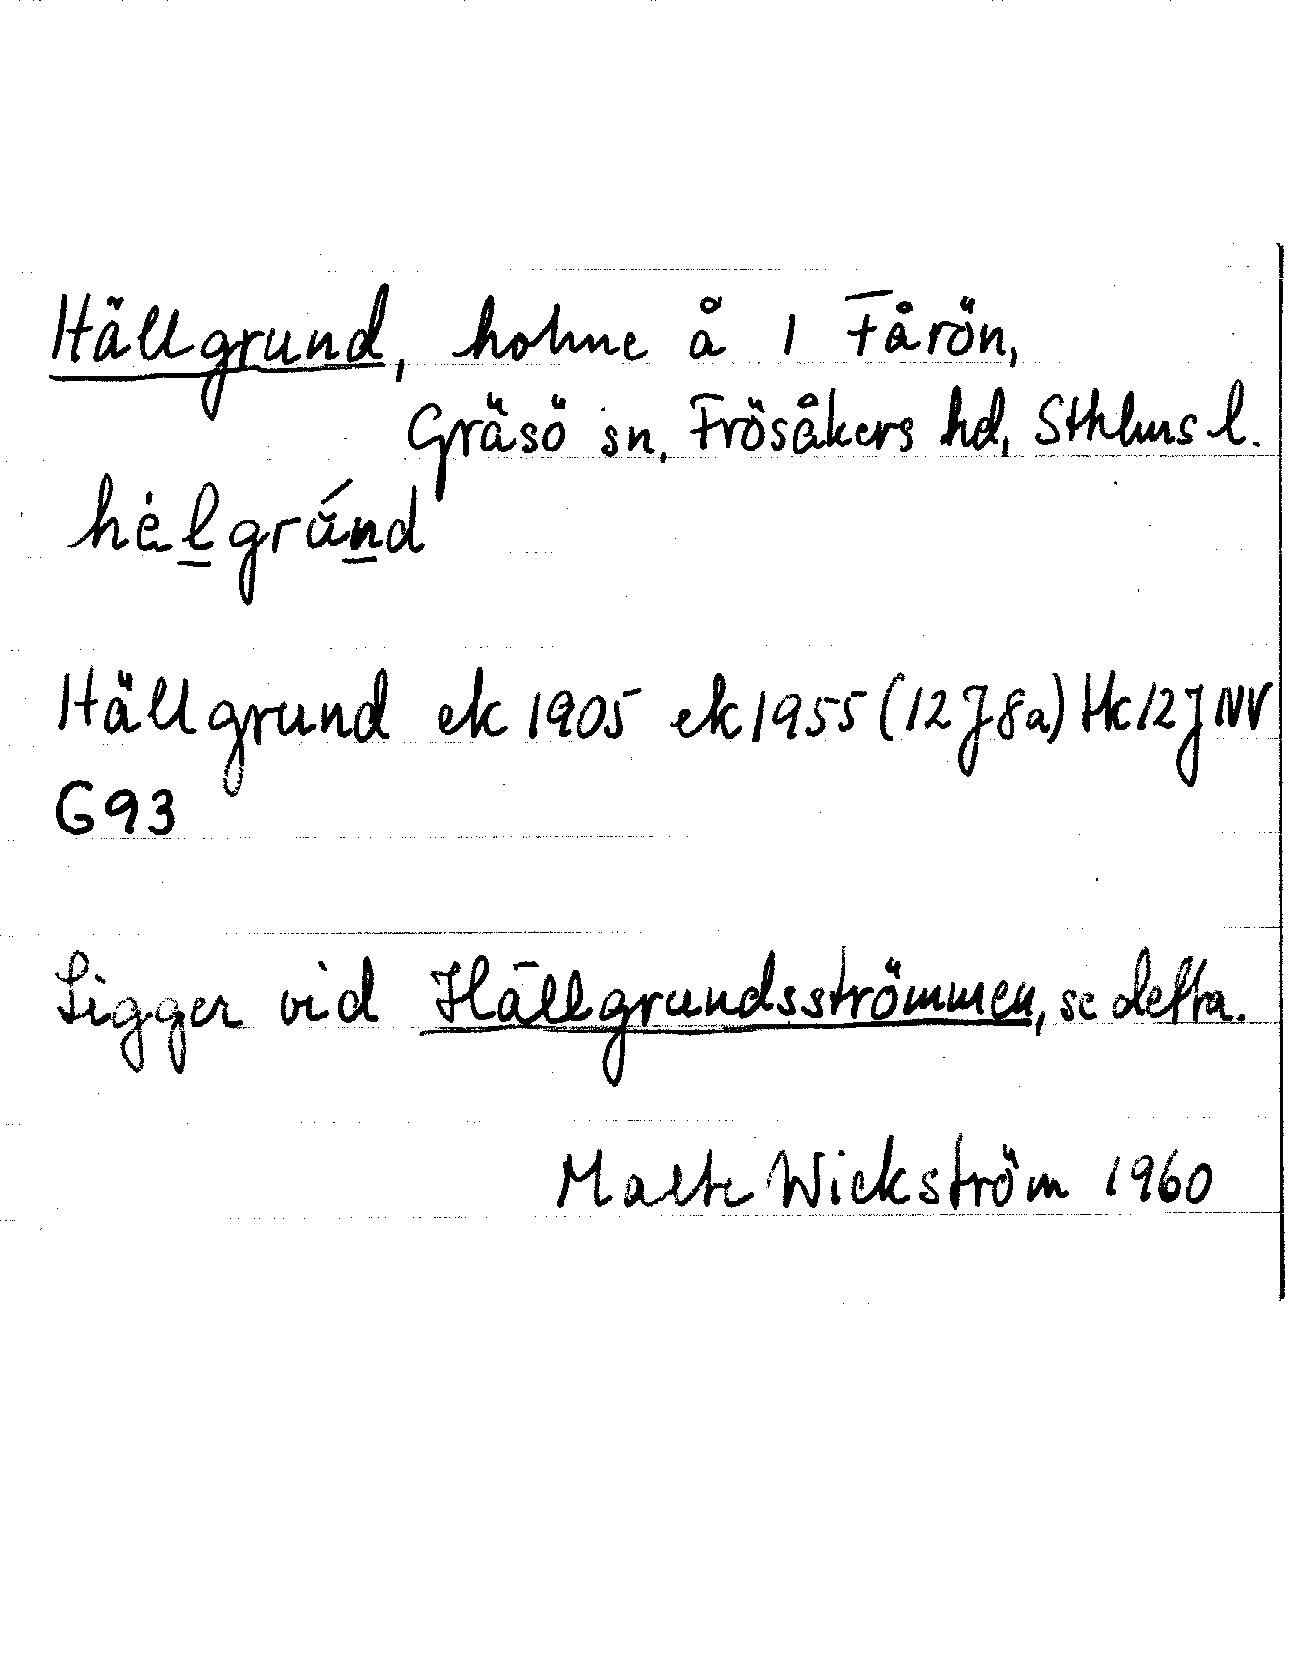 Hällgrund, holme å 1 Fårön,
Gräsö sn, Frösåkers hd, Sthlms l.
hèlgrúnd
Hällgrund ek 1905 ek 1955 (12J8a) Hk 12J NV
G93
Ligger vid Hällgrundsströmmen, se detta.
Malte Wickström 1960